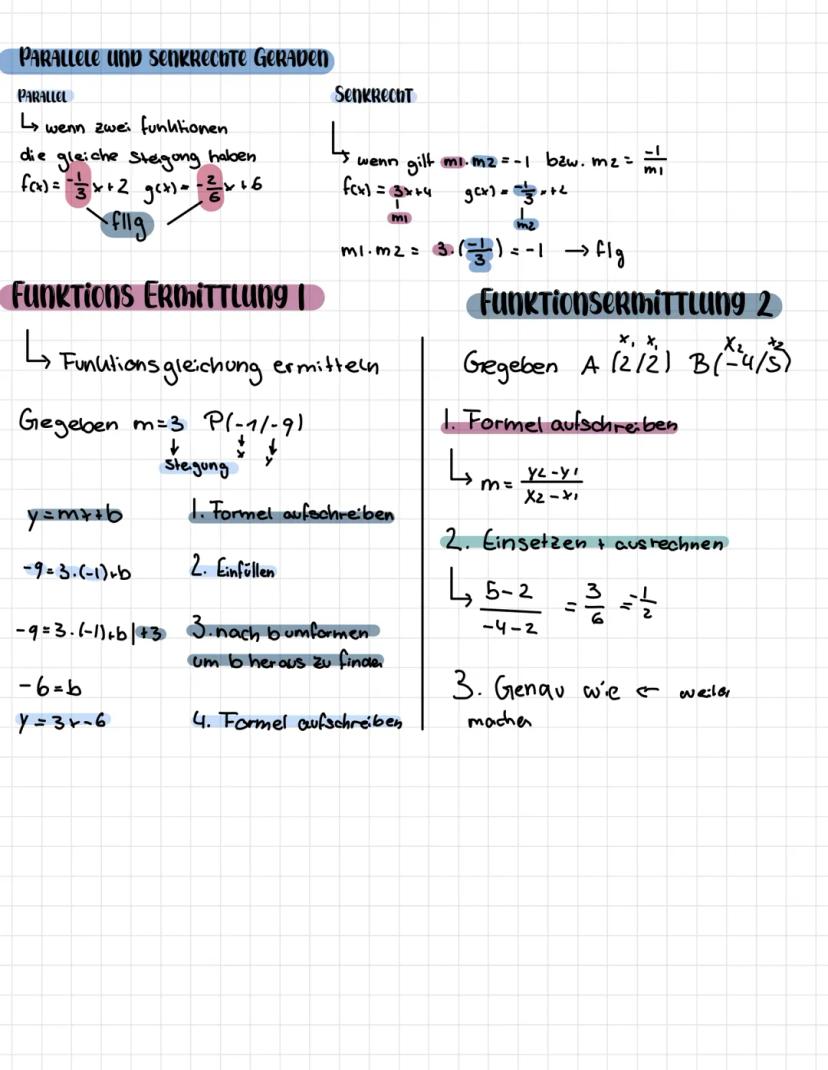 PARALLELE UND SENKRECHTE GERADEN
PARALLEL
↳ wenn zwei funktionen
die gleiche Steigung haben
f(x) = -1/3 x + 2 g(x) = -2/6 x + 6
f||g
SENKRECHT
↳ wenn gilt m1 · m2 = -1 bzw. m2 = -1/m1
f(x) = 3x+4 g(x) = -1/3 x +2
m1 m2
m1 · m2 = 3 · (-1/3) = -1 → f⊥g
FUNKTIONS ERMITTLUNG 1
↳ Funktionsgleichung ermitteln
Gegeben m=3 P(-1/-9)
↓ ↓ ↓
Steigung x y
y=mx+b 1. Formel aufschreiben
-9=3·(-1)+b 2. Einfüllen
-9=3·(-1)+b|+3 3. nach b umformen
um b heraus zu finden
-6=b
y=3x-6 4. Formel aufschreiben
FUNKTIONSERMITTLUNG 2
x1 x1 x2 x2
Gegeben A (2/2) B(-4/5)
1. Formel aufschreiben
↳ m = y2-y1 / x2-x1
2. Einsetzen + ausrechnen
↳ 5-2 / -4-2 = 3/6 = -1/2
3. Genau wie ← weiter
machen